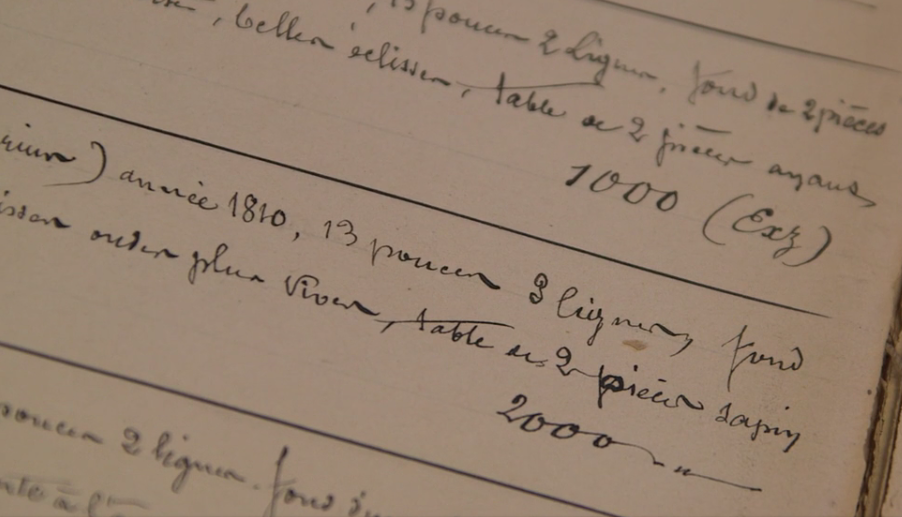 , 13 pouces 2 lignes, fond de 2 pièces
, belles éclisses, table de 2 pièces ayant
1000 (Exz)
) année 1810, 13 pouces 3 lignes, fond
ondes plus vives, table de 2 pièces sapin
2000 "
pouces 2 lignes. fond